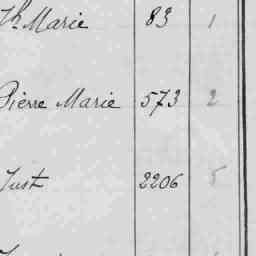 Marie 83 1
Pierre Marie 573 2
Just 2206 5